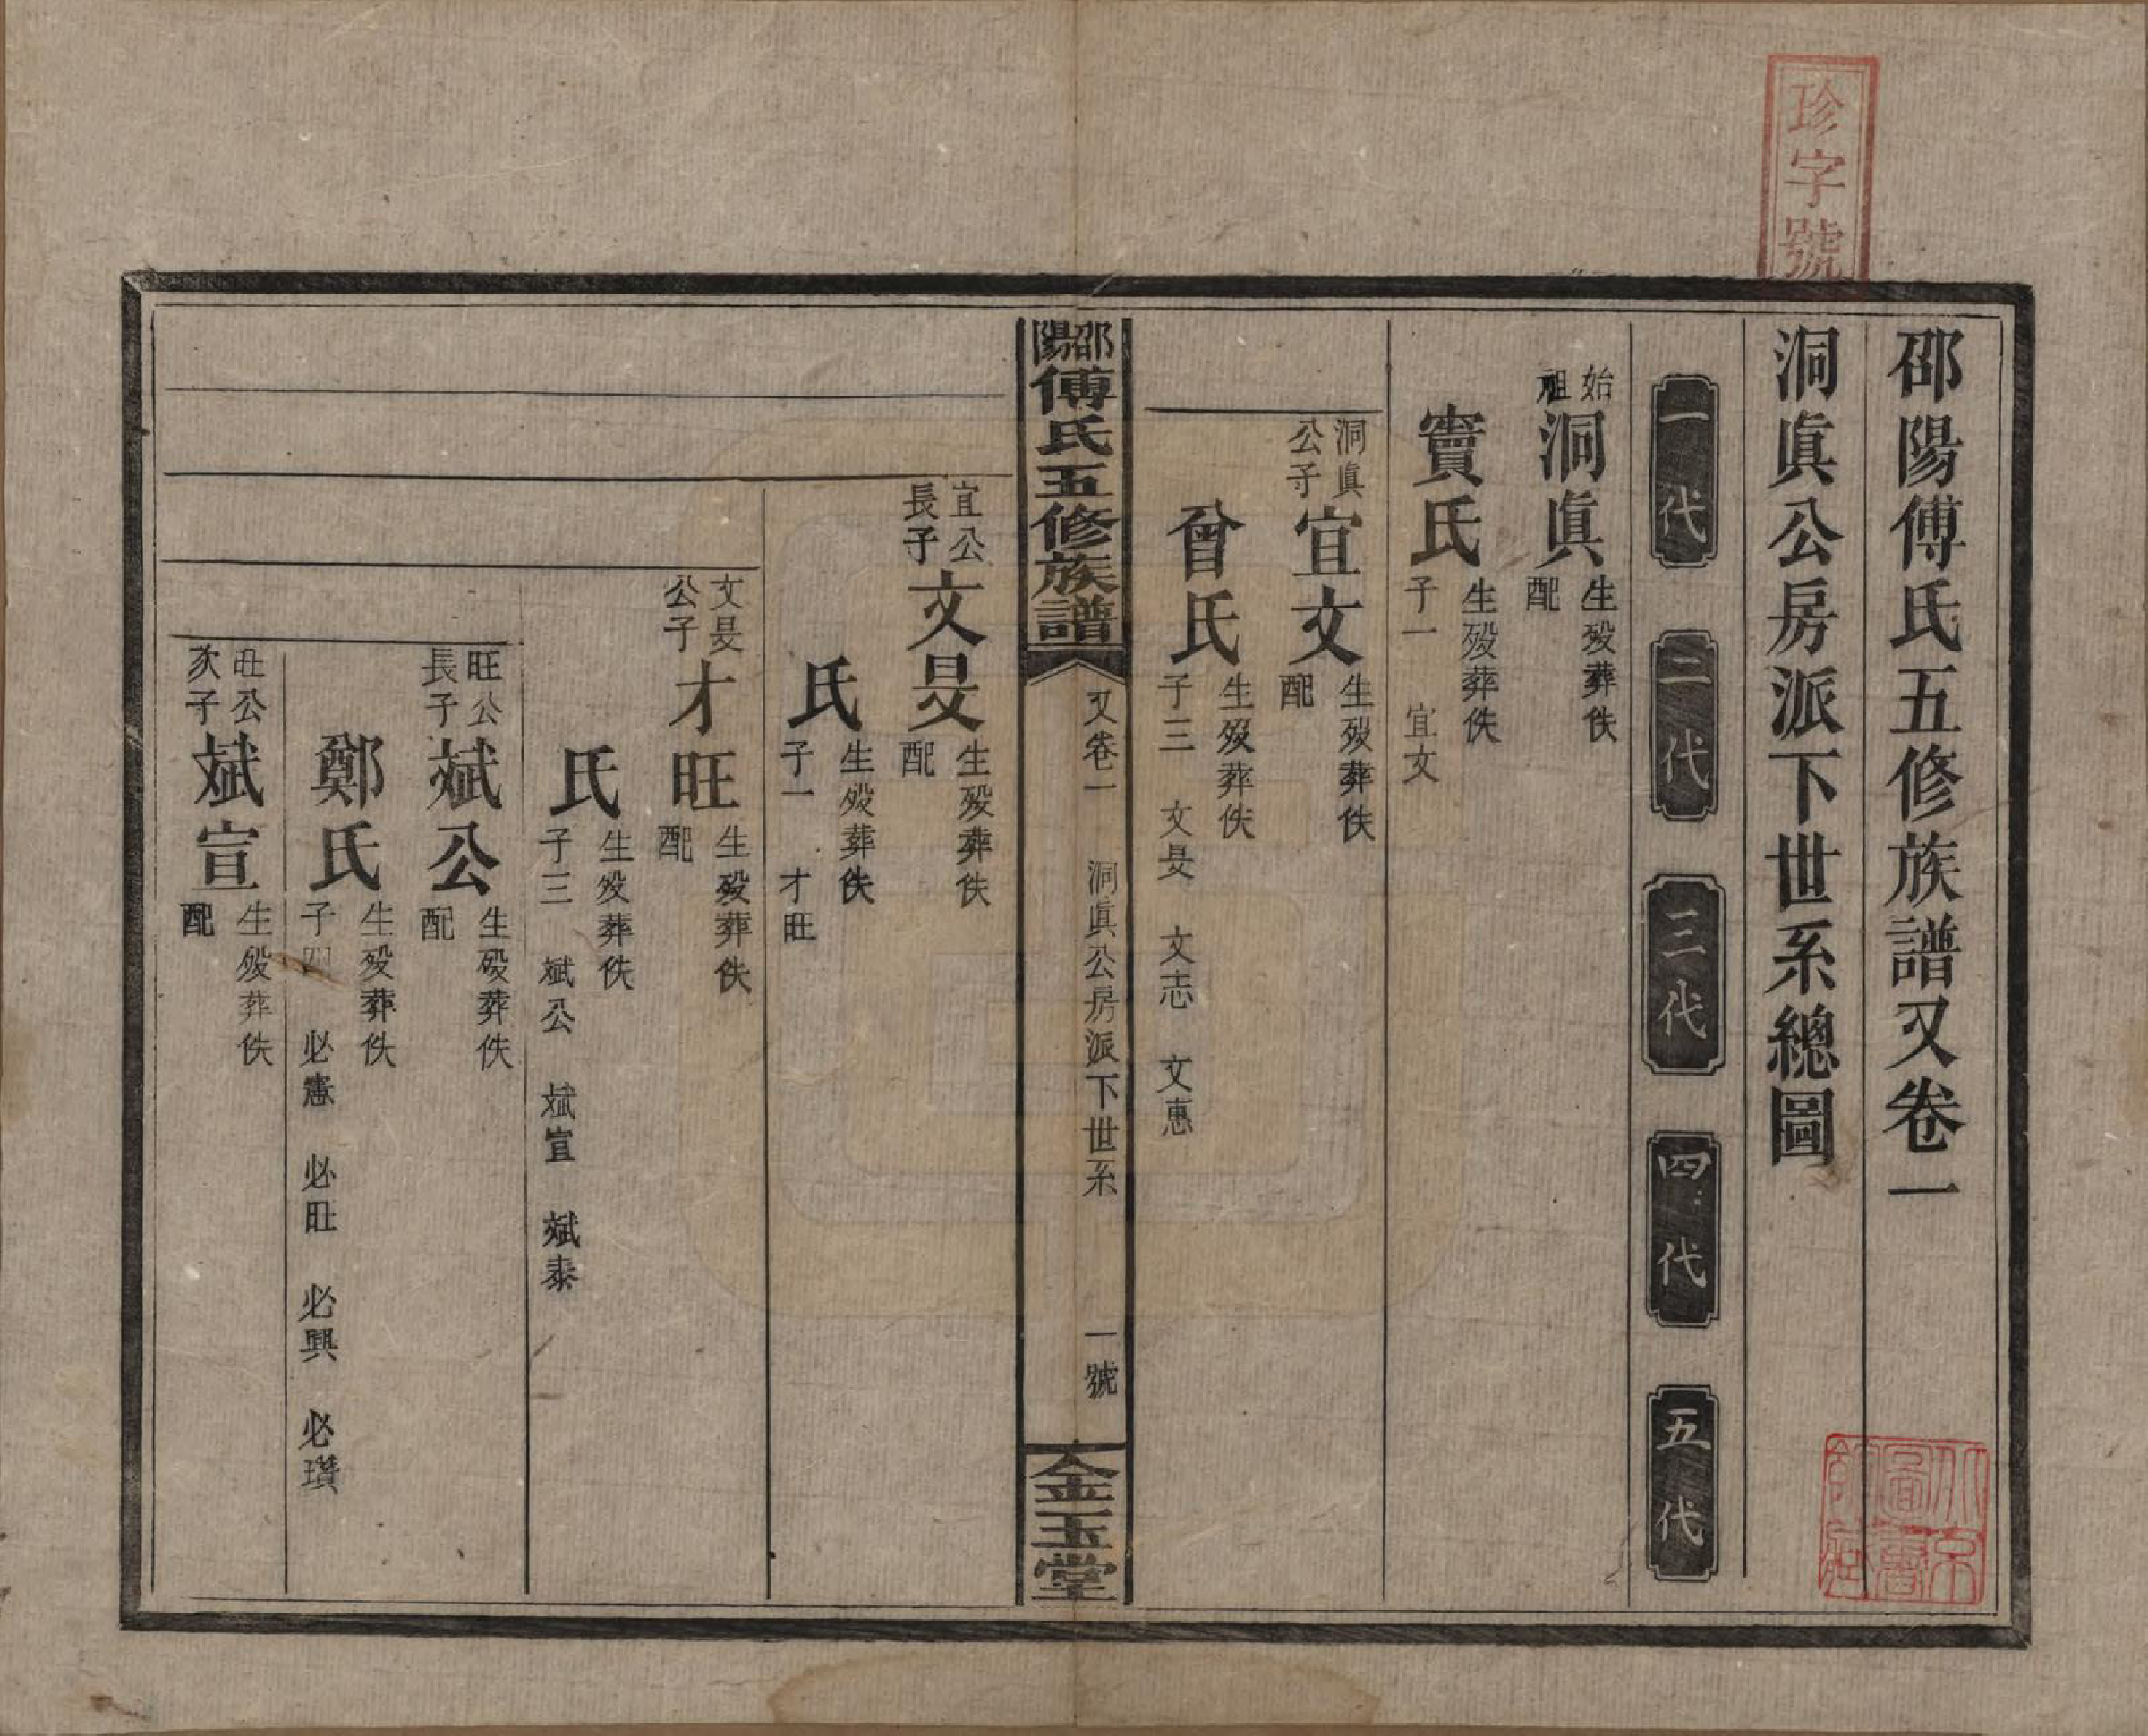 珍字號
邵陽傅氏五修族譜又卷一
洞眞公房派下世系總圖
一代
二代
三代
四代
五代
始祖
洞眞
生殁葬佚
配
竇氏
生殁葬佚
子一 宜文
洞眞公子
宜文
生殁葬佚
配
曾氏
生殁葬佚
子三 文旻 文志 文惠
邵陽傅氏五修族譜
又卷一 洞眞公房派下世系 一號
金玉堂
宜公長子
文旻
生殁葬佚
配
氏
生殁葬佚
子一 才旺
文旻公子
才旺
生殁葬佚
配
氏
生殁葬佚
子三 斌公 斌宣 斌泰
旺公長子
斌公
生殁葬佚
配
鄭氏
生殁葬佚
子四 必憲 必旺 必興 必瓚
旺公次子
斌宣
生殁葬佚
配
北京圖書館藏